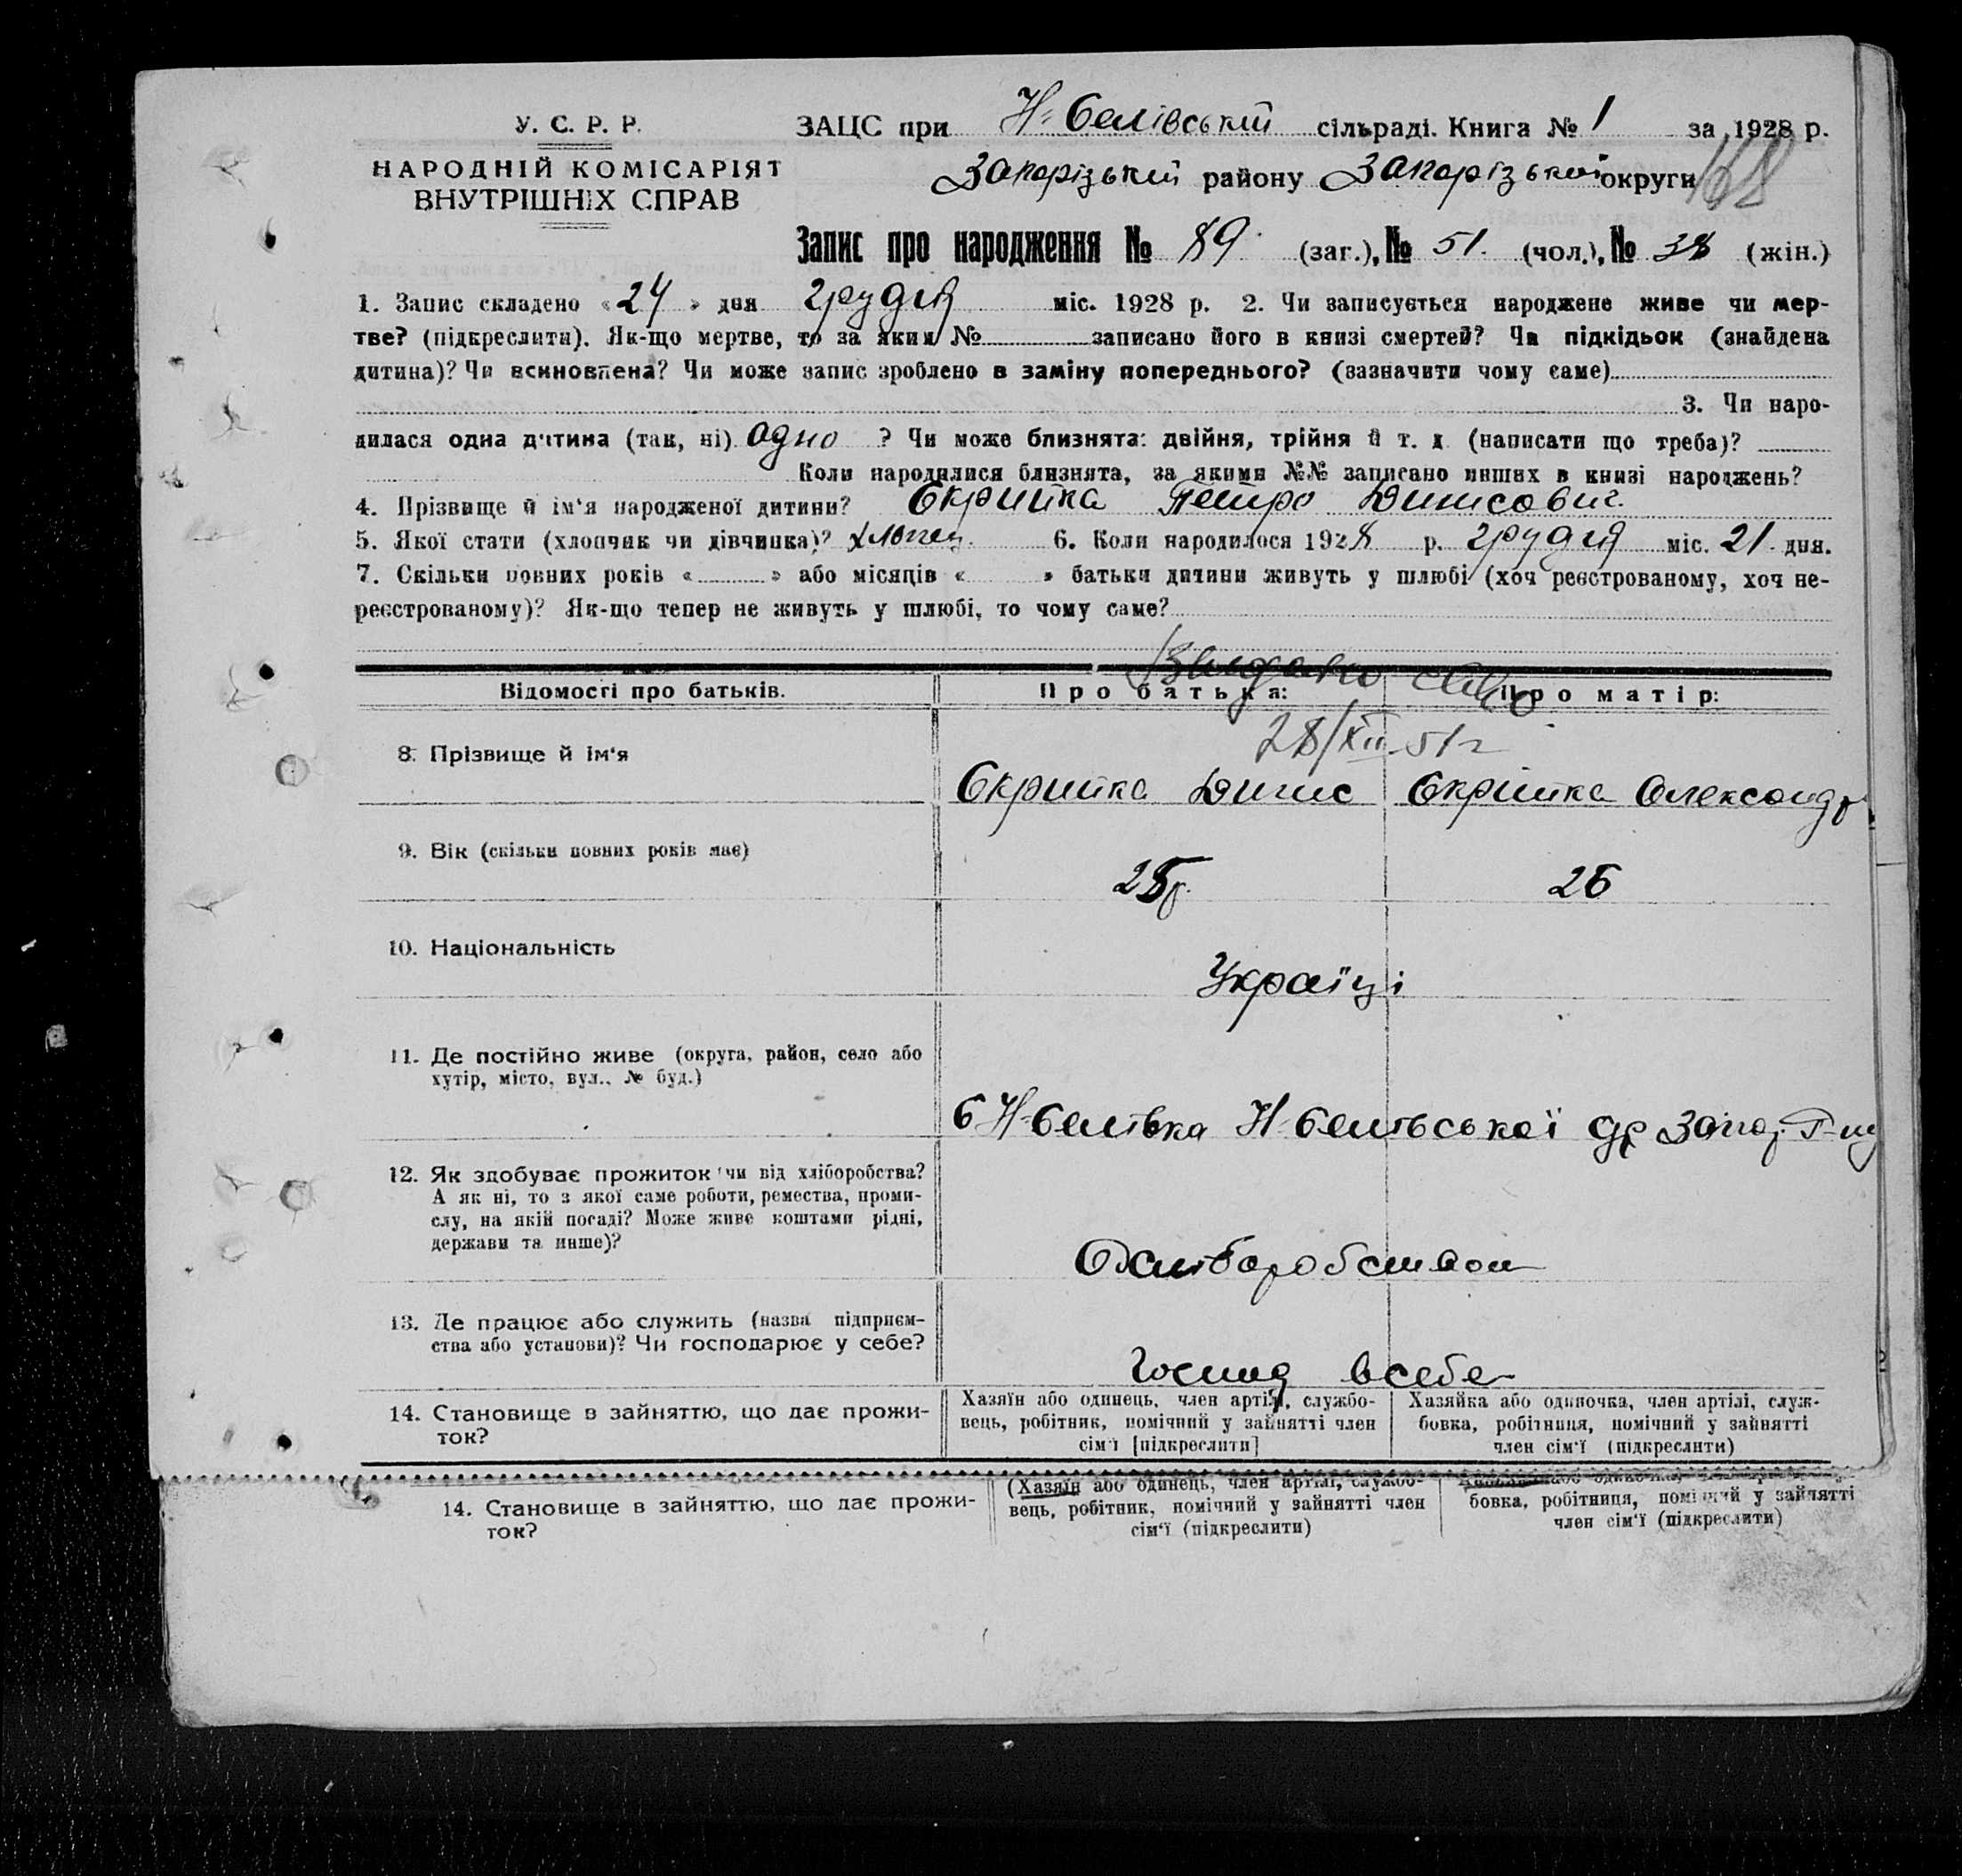 У. С. Р. Р.
НАРОДНІЙ КОМІСАРІЯТ
ВНУТРІШНІХ СПРАВ
ЗАЦС при Н-Селівській сільраді. Книга № 1 за 1928 р.
Запорізький району Запорізької округи
168
Запис про народження № 89 (заг.), № 51. (чол.), № 38 (жін.)
1. Запис складено «24» дня грудня міс. 1928 р. 2. Чи записується народжене живе чи мер-
тве? (підкреслити). Як-що мертве, то за яким № записано його в книзі смертей? Чи підкідьок (знайдена
дитина)? Чи всиновлена? Чи може запис зроблено в заміну попереднього? (зазначити чому саме)
3. Чи наро-
дилася одна дитина (так, ні) одно ? Чи може близнята: двійня, трійня й т. д. (написати що треба)?
Коли народилися близнята, за якими №№ записано инших в книзі народжень?
4. Прізвище й ім'я народженої дитини? Скрипка Петро Динисович.
5. Якої стати (хлопчик чи дівчинка)? хлопец. 6. Коли народилося 1928 р. грудня міс. 21 дня.
7. Скільки повних років « » або місяців « » батьки дитини живуть у шлюбі (хоч реєстрованому, хоч не-
реєстрованому)? Як-що тепер не живуть у шлюбі, то чому саме?
Відомості про батьків. Про батька: Про матір:
28/XII 51г
8. Прізвище й ім'я Скрипка Динис Скрипка Олександр
9. Вік (скільки повних років має) 26
10. Національність Україці
11. Де постійно живе (округа, район, село або
хутір, місто, вул., № буд.)
С Н-Селівка Н-Селівської
12. Як здобуває прожиток чи від хліборобства?
А як ні, то з якої саме роботи, ремества, проми-
слу, на якій посаді? Може живе коштами рідні,
держави та инше)?
Хліборобством
13. Де працює або служить (назва підприєм-
ства або установи)? Чи господарює у себе?
Господ в себе
14. Становище в зайняттю, що дає прожи-
ток?
Хазяїн або одинець, член артілі, службо-
вець, робітник, помічний у зайнятті член
сім'ї [підкреслити]
Хазяйка або одиночка, член артілі, служ-
бовка, робітниця, помічний у зайнятті
член сім'ї (підкреслити)
14. Становище в зайняттю, що дає прожи-
ток?
(Хазяїн або одинець, член артілі, службо-
вець, робітник, помічний у зайнятті член
сім'ї (підкреслити)
бовка, робітниця, помічний у зайнятті
член сім'ї (підкреслити)